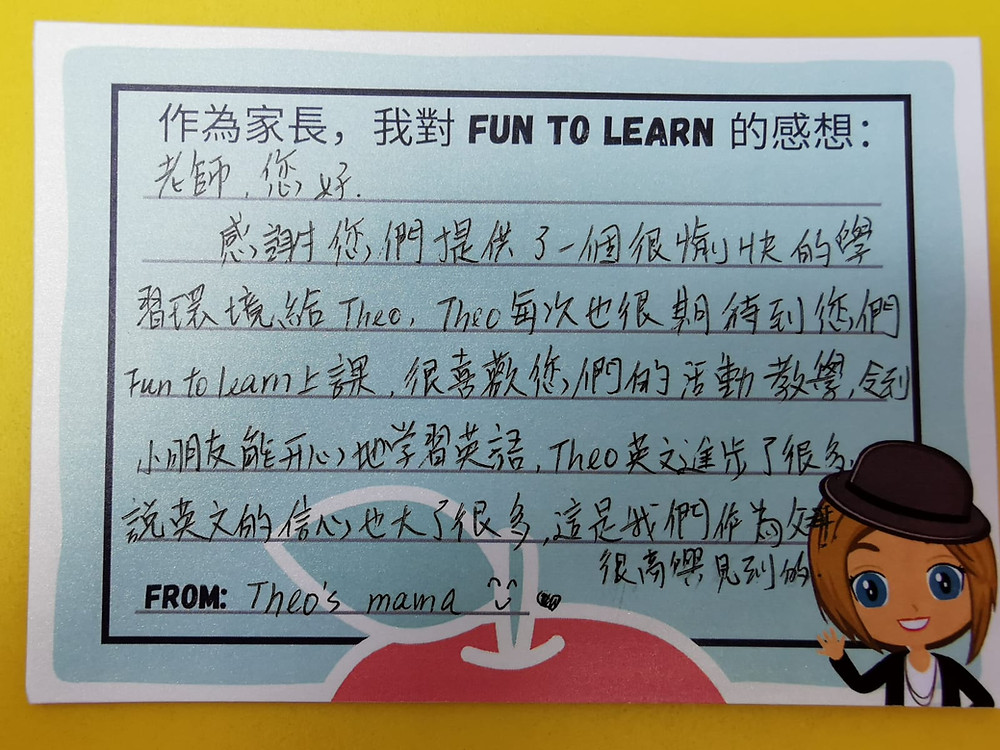 作為家長，我對 FUN TO LEARN 的感想：
老師，您好.
感謝您們提供了一個很愉快的學
習環境給 Theo, Theo每次也很期待到您們
Fun to learn上課, 很喜歡您們的活動教學, 令到
小朋友能开心地学習英語, Theo英文進步了很多,
說英文的信心也大了很多, 這是我們作為父母
很高興見到的.
FROM: Theo's mama